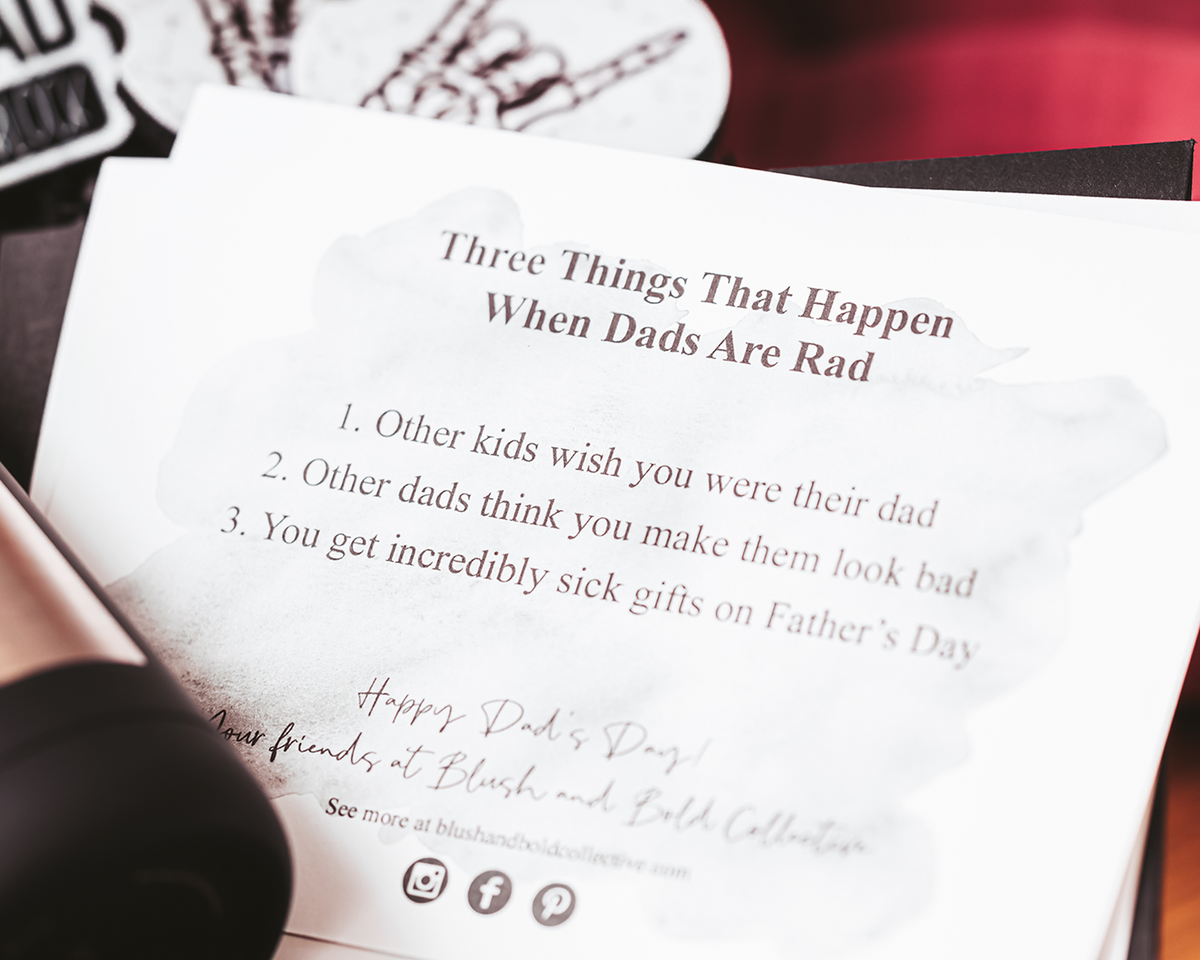 AD
Three Things That Happen
When Dads Are Rad
1. Other kids wish you were their dad
2. Other dads think you make them look bad
3. You get incredibly sick gifts on Father's Day
Happy Dad's Day!
Your friends at Blush and Bold Collective
See more at blushandboldcollective.com